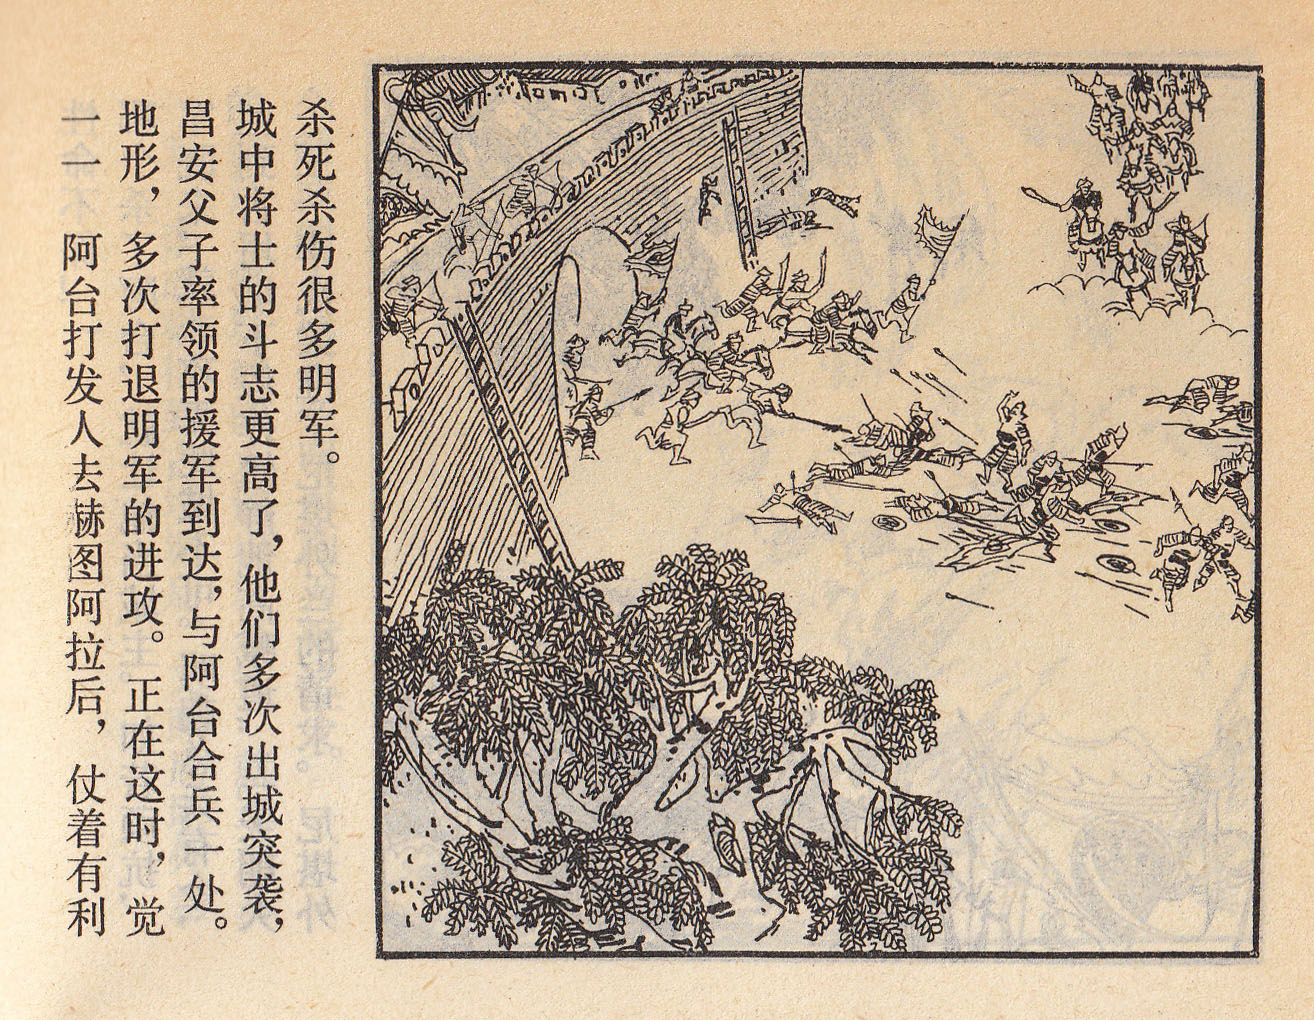 一一 阿台打发人去赫图阿拉后，仗着有利
地形，多次打退明军的进攻。正在这时，觉
昌安父子率领的援军到达，与阿台合兵一处。
城中将士的斗志更高了，他们多次出城突袭，
杀死杀伤很多明军。